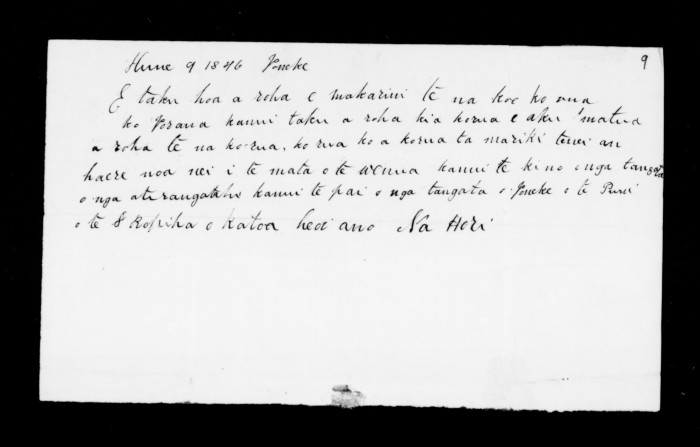 9
Hune 9 1846 Poneke
E taku hoa a roha e makarini te na koe ko rua
ko Porana kanui taku a roha kia korua e aku matua
a roha te na korua, ko rua ko a korua ta mariki tenei au
haere noa nei i te mata o te wenua kanui te ki no o nga tangata
o nga ati rangatahi kanui te pai o nga tangata o Poneke o te Puni
o te Ropiha o katoa heoi ano Na Hori